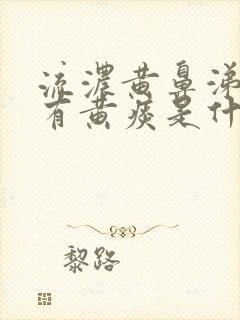 流濃黄鼻涕
有黄痰是什
黎路